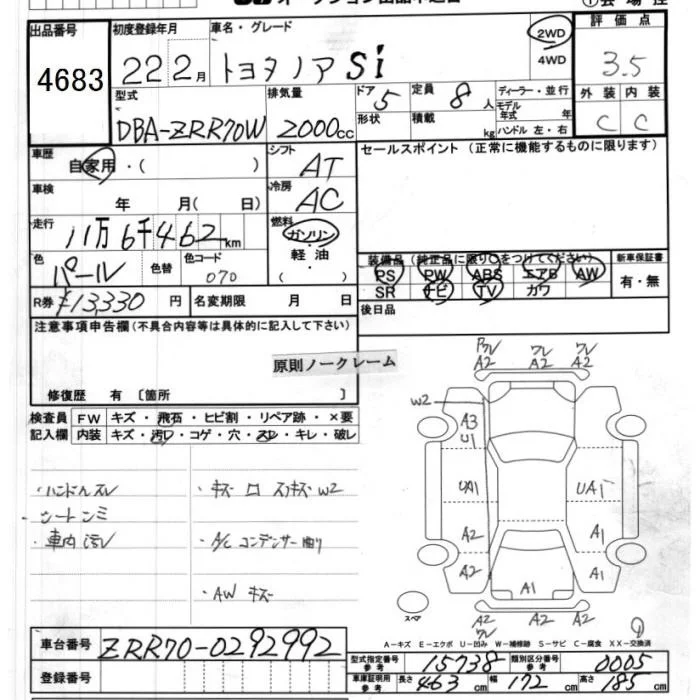 出品番号
4683
初度登録年月
22 2月
車名・グレード
トヨタ ノア Si
2WD
4WD
評価点
3.5
外装 内装
C C
型式
DBA-ZRR70W
排気量
2000cc
ドア 5
形状
定員 8人
積載 kg
ディーラー・並行
モデル年式 年
ハンドル 左・右
車歴
自家用・( )
シフト
AT
セールスポイント (正常に機能するものに限ります)
車検
年 月( 日)
冷房
AC
走行
11万6千462km
燃料
ガソリン
軽・油
( )
色
パール
色替
色コード
070
装備品 (純正品に限り○をつけてください)
PS PW ABS エアB AW
SR ナビ TV カワ
新車保証書
有・無
R券 ¥13,330円
名変期限 月 日
後日品
注意事項申告欄(不具合内容等は具体的に記入して下さい)
原則ノークレーム
修復歴 有〔箇所 〕
検査員
記入欄
FW キズ・飛石・ヒビ割・リペア跡・×要
内装 キズ・汚レ・コゲ・穴・スレ・キレ・破レ
・ハンドルスレ
・シートシミ
・車内汚レ
・A/C コンデンサー曲り
・AW キズ
A2 A2 A2
W2
A3
U1
UA1
UA1
A2
A1
A2
A1
A1
A2 A2 A2
スペア
A−キズ E−エクボ U−凹み W−補修跡 S−サビ C−腐食 XX−交換済
車台番号
ZRR70-0292992
登録番号
型式指定番号 参考 15738
類別区分番号 参考 0005
車庫証明用 参考 長さ 463cm 幅 172cm 高さ 185cm